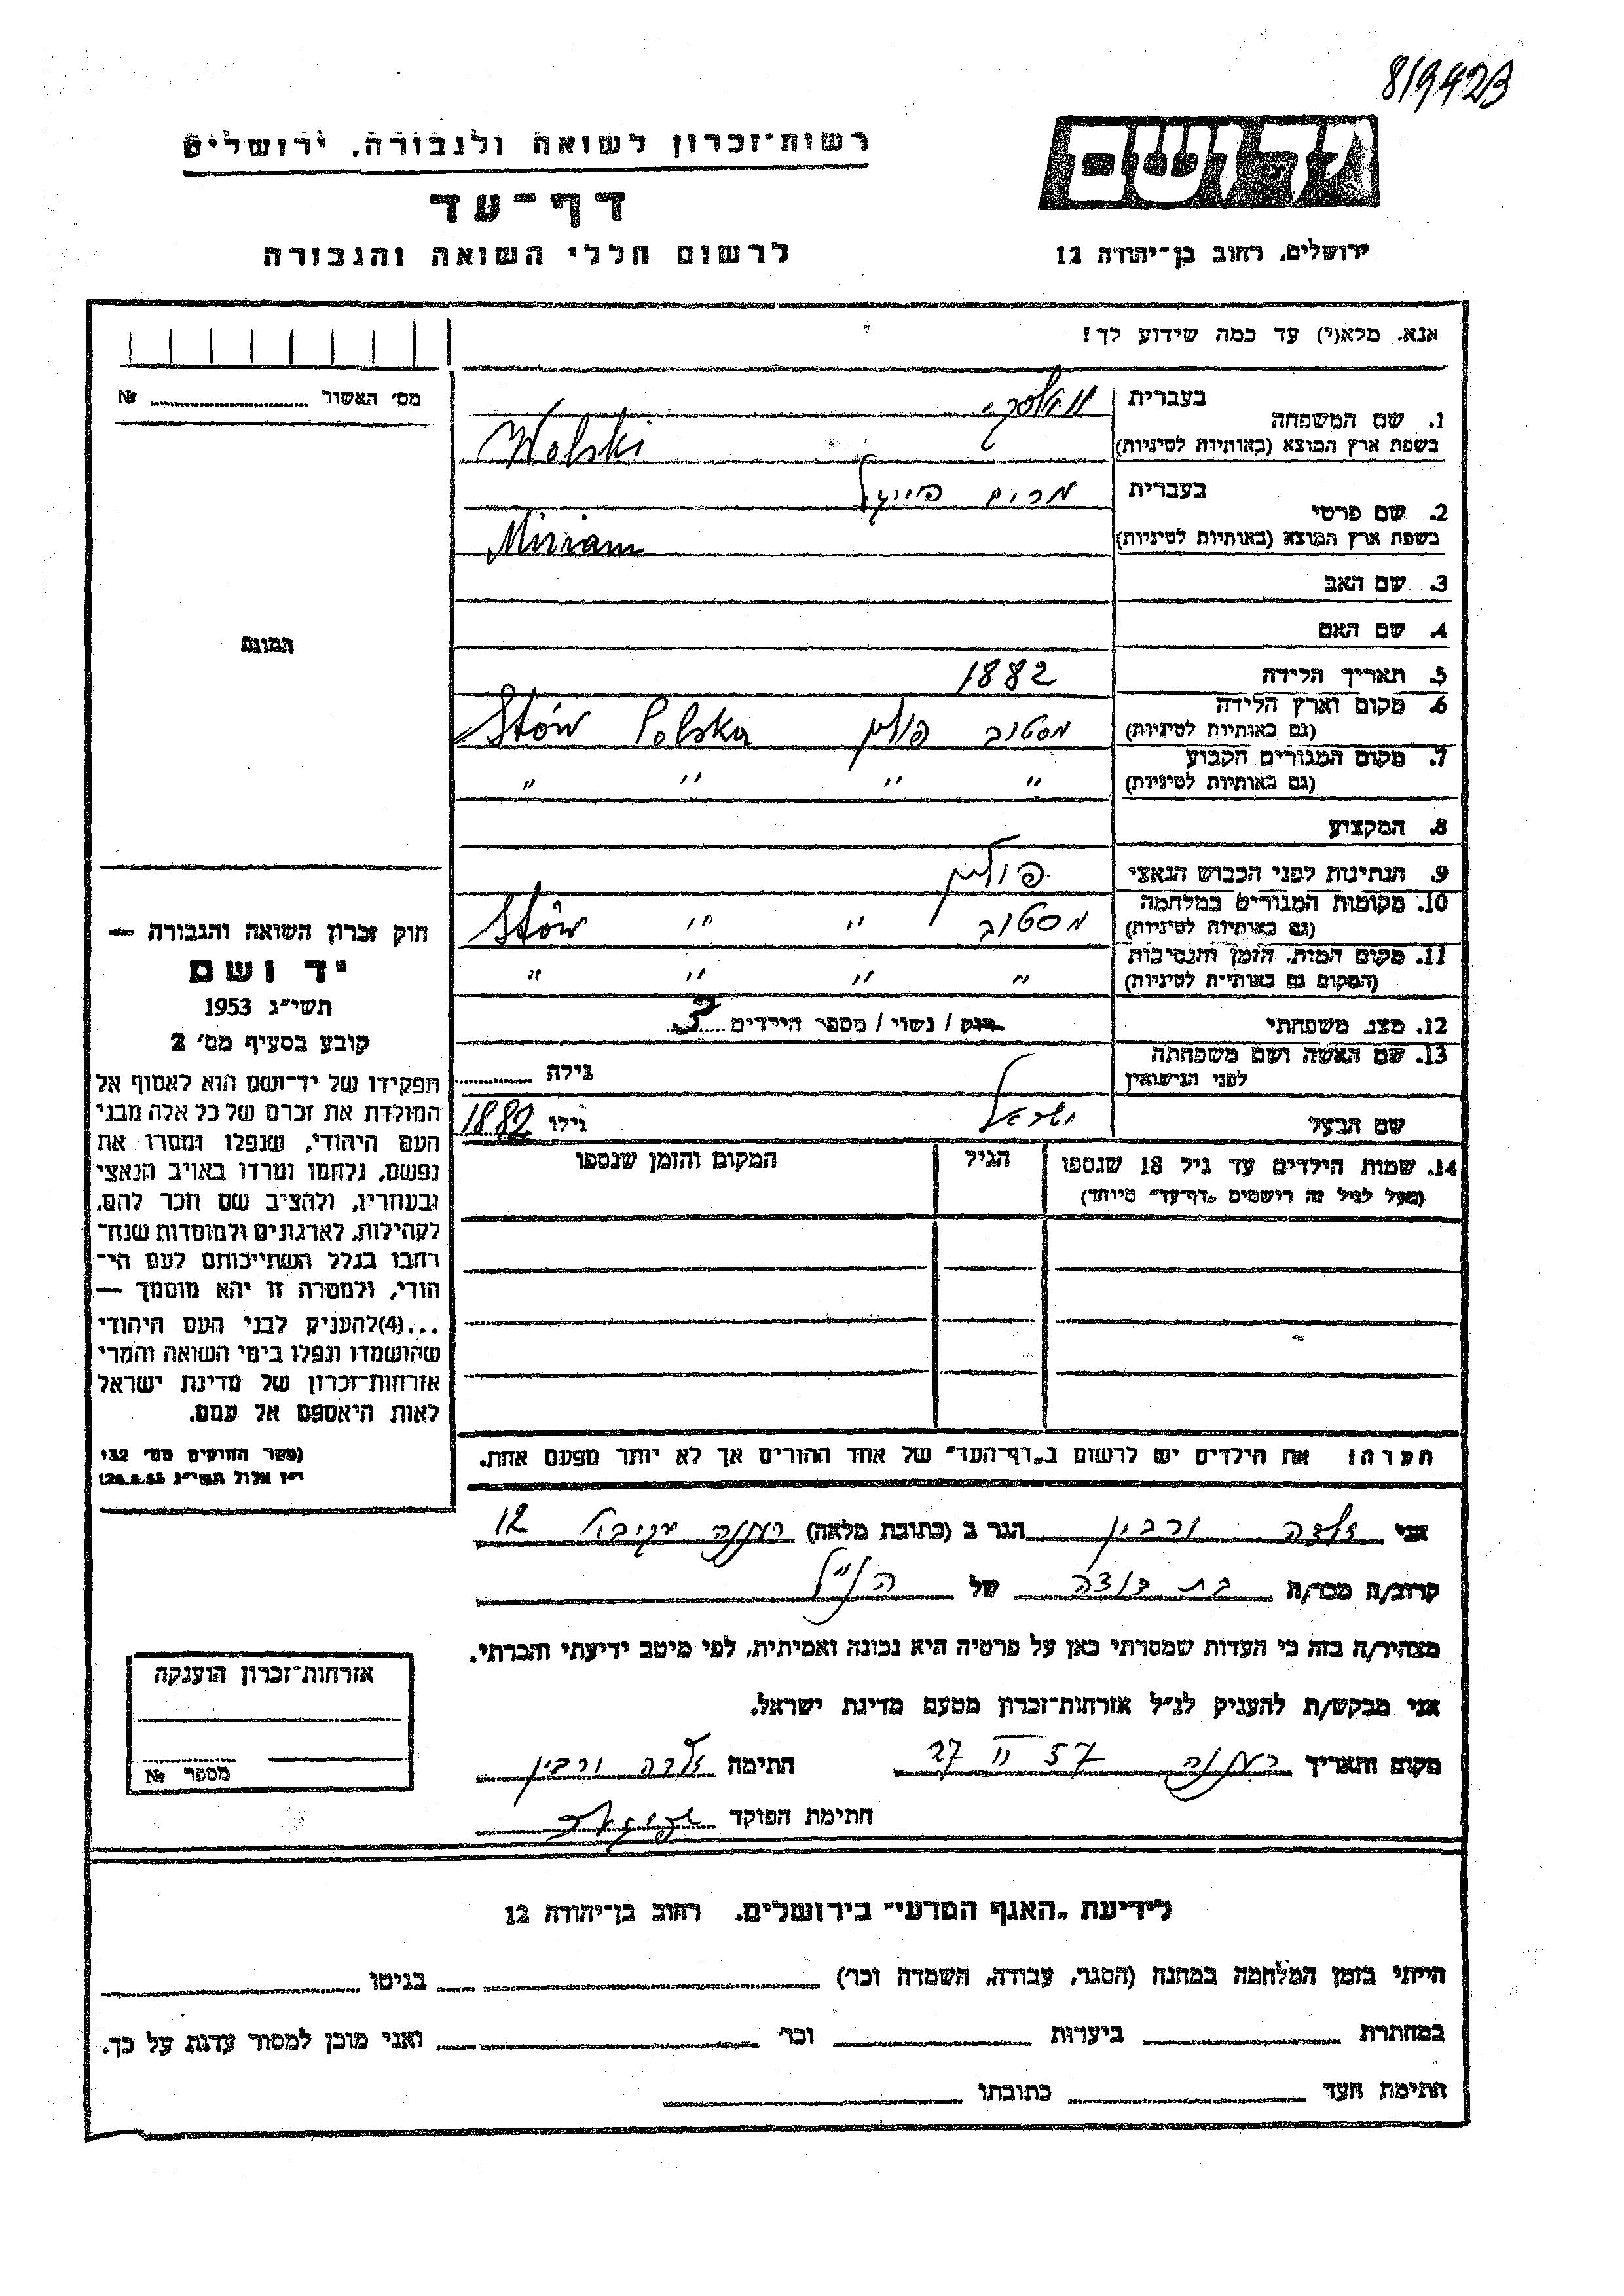 819423
רשות־זכרון לשואה ולגבורה, ירושלים
דף־עד
לרשום חללי השואה והגבורה
יד ושם
ירושלים, רחוב בן־יהודה 12
אנא, מלא(י) עד כמה שידוע לך!
מס׳ האשור № 
1. שם המשפחה
בעברית
בשפת ארץ המוצא (באותיות לטיניות) Wolski
2. שם פרטי
בעברית מרים פייגל
בשפת ארץ המוצא (באותיות לטיניות) Miriam
3. שם האב
4. שם האם
תמונה
5. תאריך הלידה 1882
6. מקום וארץ הלידה
(גם באותיות לטיניות) מסטוב פולין Polska Stów
7. מקום המגורים הקבוע
(גם באותיות לטיניות) " " " "
8. המקצוע
9. הנתינות לפני הכבוש הנאצי פולין
10. מקומות המגורים במלחמה
(גם באותיות לטיניות) מסטוב " " Stów
11. מקום המות, הזמן והנסיבות
(המקום גם באותיות לטיניות) " " " "
12. מצב משפחתי רוק / נשוי / מספר הילדים 3
13. שם האשה ושם משפחתה
לפני הנישואין גילה
שם הבעל ישראל גילו 1882
14. שמות הילדים עד גיל 18 שנספו
(מעל לגיל זה רושמים „דף־עד״ מיוחד)
הגיל
המקום והזמן שנספו
חוק זכרון השואה והגבורה —
יד ושם
תשי״ג 1953
קובע בסעיף מס׳ 2
תפקידו של יד־ושם הוא לאסוף אל
המולדת את זכרם של כל אלה מבני
העם היהודי, שנפלו ומסרו את
נפשם, נלחמו ומרדו באויב הנאצי
ובעוזריו, ולהציב שם וזכר להם,
לקהילות, לארגונים ולמוסדות שנח־
רבו בגלל השתייכותם לעם הי־
הודי, ולמטרה זו יהא מוסמך —
...(4)להעניק לבני העם היהודי
שהושמדו ונפלו בימי השואה והמרי
אזרחות־זכרון של מדינת ישראל
לאות היאספם אל עמם.
(ספר החוקים מס׳ 132
י״ז אלול תשי״ג 28.8.53)
הערה: את הילדים יש לרשום ב„דף־העד״ של אחד ההורים אך לא יותר מפעם אחת.
אני זלדה ורבין הגר ב (כתובת מלאה) רעננה 12
קרוב/ה מכר/ה בת דודה של הנ״ל
מצהיר/ה בזה כי העדות שמסרתי כאן על פרטיה היא נכונה ואמיתית, לפי מיטב ידיעתי והכרתי.
אני מבקש/ת להעניק לנ״ל אזרחות־זכרון מטעם מדינת ישראל.
מקום ותאריך רעננה 27 II 57 חתימה זלדה ורבין
חתימת הפוקד
אזרחות־זכרון הוענקה
מספר №
לידיעת „האגף המדעי״ בירושלים, רחוב בן־יהודה 12
הייתי בזמן המלחמה במחנה (הסגר, עבודה, השמדה וכו׳) בגיטו
במחתרת ביערות וכו׳ ואני מוכן למסור עדות על כך.
חתימת העד כתובתו